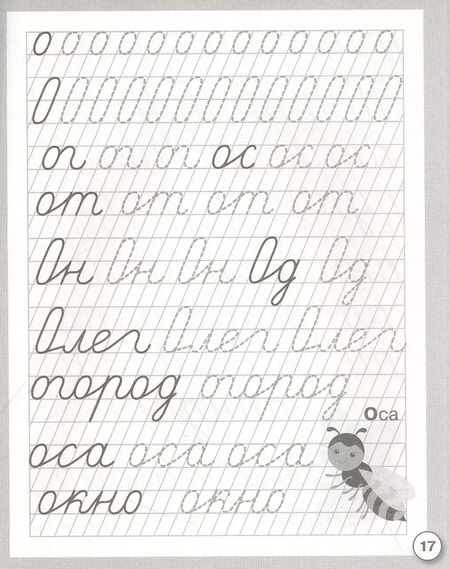 о о о о о о о о о о о о о
О О О О О О О О О О О О О
ог ог ог ос ос ос
от от от от
Он Он Он Од Од
Олег Олег Олег
огород огород
Оса
оса оса оса
окно окно
17